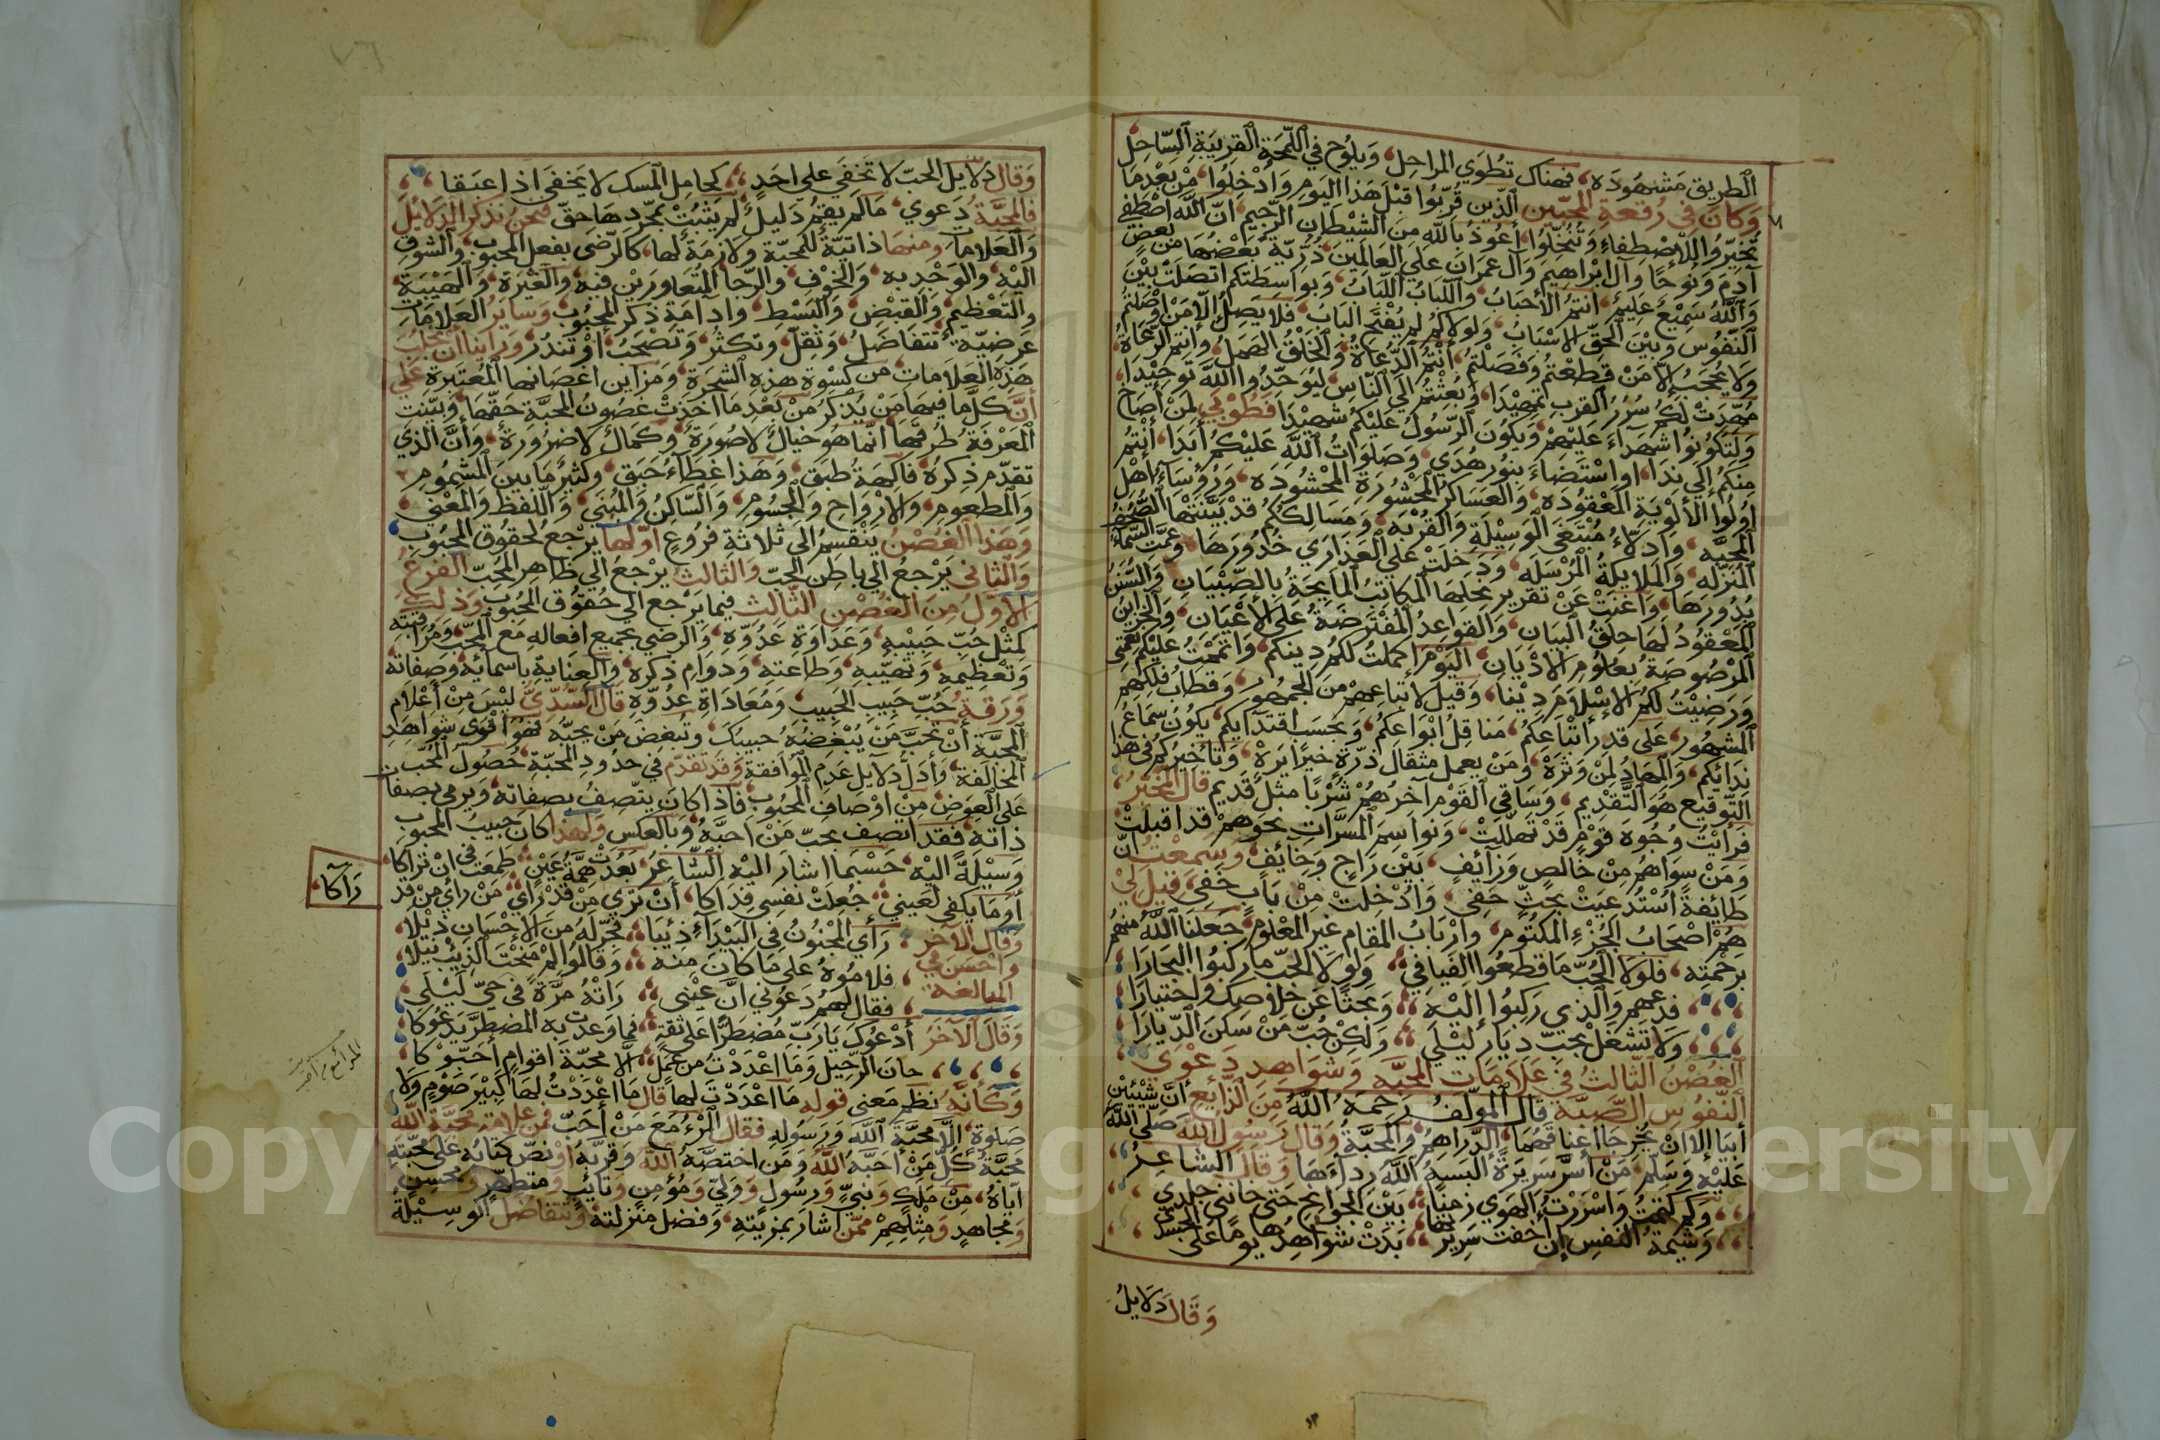 الطريق مشهودة، فهناك تطوي المراحل، ويلوح في اللمحة القريبة الساحل
وكان في رقعة المحبين الذين قربوا قبل هذا اليوم وادخلوا، من بعدما
تخيروا للاصطفاء وتنخلوا، أعوذ بالله من الشيطان الرجيم، ان الله اصطفى
آدم ونوحا وآل ابراهيم وآل عمران على العالمين، ذرية بعضها من بعض
والله سميع عليم، انتم الأحباب، واللباب اللباب، وبواسطتكم اتصلت بين
النفوس وبين الحق الاسباب، ولولاكم لم يفتح الباب، فلا يصل إلا من وصلتم
ولا يحجب إلا من قطعتم وفصلتم، أنتم الدعاة، والخلق الهمل، وانتم الرعاة
مهدت لكم سرر القرب تمهيدا، وبعثتم الى الناس ليوحدوا الله توحيدا،
ولتكونوا شهداء عليهم، ويكون الرسول عليكم شهيدا، فطوبى لمن أصاخ
منكم إلى ندا، او استضاء بنور هدى، وصلوات الله عليكم أبدا، أنتم
اولوا الألوية المعقودة، والعساكر المحشورة المحشودة، ورؤساء أهل
المحبة، وادلاء مبتغى الوسيلة والقربة، ومسالككم قد بينتها الصحف
المنزلة، والملايكة المرسلة، ودخلت على العذارى خدورها، وعمت السماء
بدورها، واغنت عن تقرير محلها المكاتب المايحة بالصبيان، والسنن
المعقود لها حلق البيان، والقواعد المفترضة على الأعيان، والخزاين
المرصوصة بعلوم الاديان، اليوم أكملت لكم دينكم، واتممت عليكم نعمتي
ورضيت لكم الإسلام دينا، وقيل لاتباعهم من الجمهور، وقطاب فلكهم
المشهور، على قدر أتباعكم، مناقل ابواعكم، وبحسب اقتدايكم، يكون سماع
ندائكم، والمهاد لمن وثره، ومن يعمل مثقال ذرة خيرا يره، وتأخيركم في هذا
التوقيع هو التقديم، وساقي القوم آخرهم شربا مثل قديم قال المخبر،
فرأيت وجوه قوم قد تهللت، ونواسم المسرات نحوهم قد اقبلت
ومن سواهم من خالص وزائف، بين راج وخائف، وسمعت ان
طايفة استدعيت بحث حفي، وادخلت من باب خفي، قيل لي
هم اصحاب الجزء المكتوم، وارباب المقام غير المعلوم، جعلنا الله منهم
برحمته، فلولا الحب ما قطعوا الفيافي، ولولا الحب ما ركبوا البحارا
فدعهم والذي ركبوا إليه، وبحثا عن خلاصك واختيارا
ولا تشغل بحب ديار ليلى، ولكن حب من سكن الديارا
الغصن الثالث في علامات المحبة وشواهد دعوى
النفوس الصبة قال المولف رحمه الله من الذايع أن شيئين
أبيا إلا ان يخرجا اعناقهما، الدراهم، والمحبة، وقال رسول الله صلى الله
عليه وسلم من أسر سريرة البسه الله رداءها، وقال الشاعر
وكم كتمت واسررت الهوى زمنا، بين الجوانح حتى خانني جلدي
وشيمة النفس إن اخفت سريرتها، بدت شواهدها يوما على الجسد
وقال دلايل
وقال دلايل الحب لا تخفى على احد، كحامل المسك لا يخفى اذا عبقا
فالمحبة دعوى، ما لم يقم دليل، لم يثبت بمجردها حق، فنحن نذكر الدلايل
والعلامات ومنها ذاتية للمحبة ولازمة لها، كالرضى بفعل المحبوب، والشوق
اليه، والوجد به، والخوف، والرجا المتعاورين فيه، والغيرة، والهيبة،
والتعظيم، والقبض، والبسط، وادامة ذكر المحبوب وساير العلامات
عرضية تتفاضل، وتقل، وتكثر، وتصحب، أو تندر، ورأينا ان نجلب
هذه العلامات من كسوة هذه الشجرة، ومزاين اغصانها المعتبرة على
أن كل ما فيها من يذكر من بعد ما اخذت غصون المحبة حقها، وبينت
المعرفة طرقها، انما هو خيال لا صورة، وكمال لا ضرورة، وأن الذي
تقدم ذكره فاكهة طبق، وهذا غطاء حبق، وكثير ما بين المشموم،
والمطعوم، والارواح والجسوم، والساكن والمبنى، واللفظ والمعنى،
وهذا الغصن ينقسم الى ثلاثة فروع، اولها يرجع لحقوق المحبوب،
والثاني يرجع الى باطن المحب، والثالث يرجع الى ظاهر المحب، الفرع
الأول من الغصن الثالث فيما يرجع الى حقوق المحبوب وذلك
كمثل حب حبيبه، وعداوة عدوه، والرضى بجميع افعاله مع المحب، ومراقبته
وتعظيمه، وتهيبه، وطاعته، ودوام ذكره، والعناية باسمائه، وصفاته
ورقة حب حبيب الحبيب، ومعاداة عدوه قال السدي ليس من أعلام
المحبة أن تحب من يبغضه حبيبك، وتبغض من يحبه فهو اقوى شواهد
المخالفة، وأدل دلايل عدم الموافقة وقد تقدم في حدود المحبة، حصول المحب
على العوض من اوصاف المحبوب، فاذا كان يتصف بصفاته، ويرمي بصفات
ذاته، فقد اتصف بحب من احبه، وبالعكس، ولهذا كان حبيب المحبوب
وسيلة اليه، حسبما اشار اليه الشاعر، بعدت همة عين، طمعت في ان تراكا
راكا
أوما يكفي لعيني، جعلت نفسي فداكا، أن ترى من قد رأى، من رأى من قد
وقال الآخر رأى المجنون في البيداء ذئبا، فجر له من الإحسان ذيلا،
واحسن في فلاموه على ما كان منه، وقالوا لم منحت الذيب نيلا،
المبالغة فقال لهم دعوني ان عيني، رأته مرة في حي ليلى،
وقال الآخر أدعوك يا رب مضطرا على ثقة، فما وعدت به المضطر يدعوكا
حان الرحيل وما اعددت من عمل، الا محبة اقوام أحبوكا،
وكأنه نظم معنى قوله ما اعددت لها قال ما اعددت لها كبير صوم ولا
صلوة، إلا محبة الله ورسوله، فقال المرء مع من أحب، فمن علامة محبة الله
محبة كل من احبه الله ومن اختصه الله وقربه أو نص كتابه على محبته
اياه، من ملك ونبي ورسول وولي ومؤمن وتائب ومتطهر ومحسن
ومجاهد ومثلهم ممن اشار بمزيته، وفضل منزلته، وتتفاضل الوسيلة